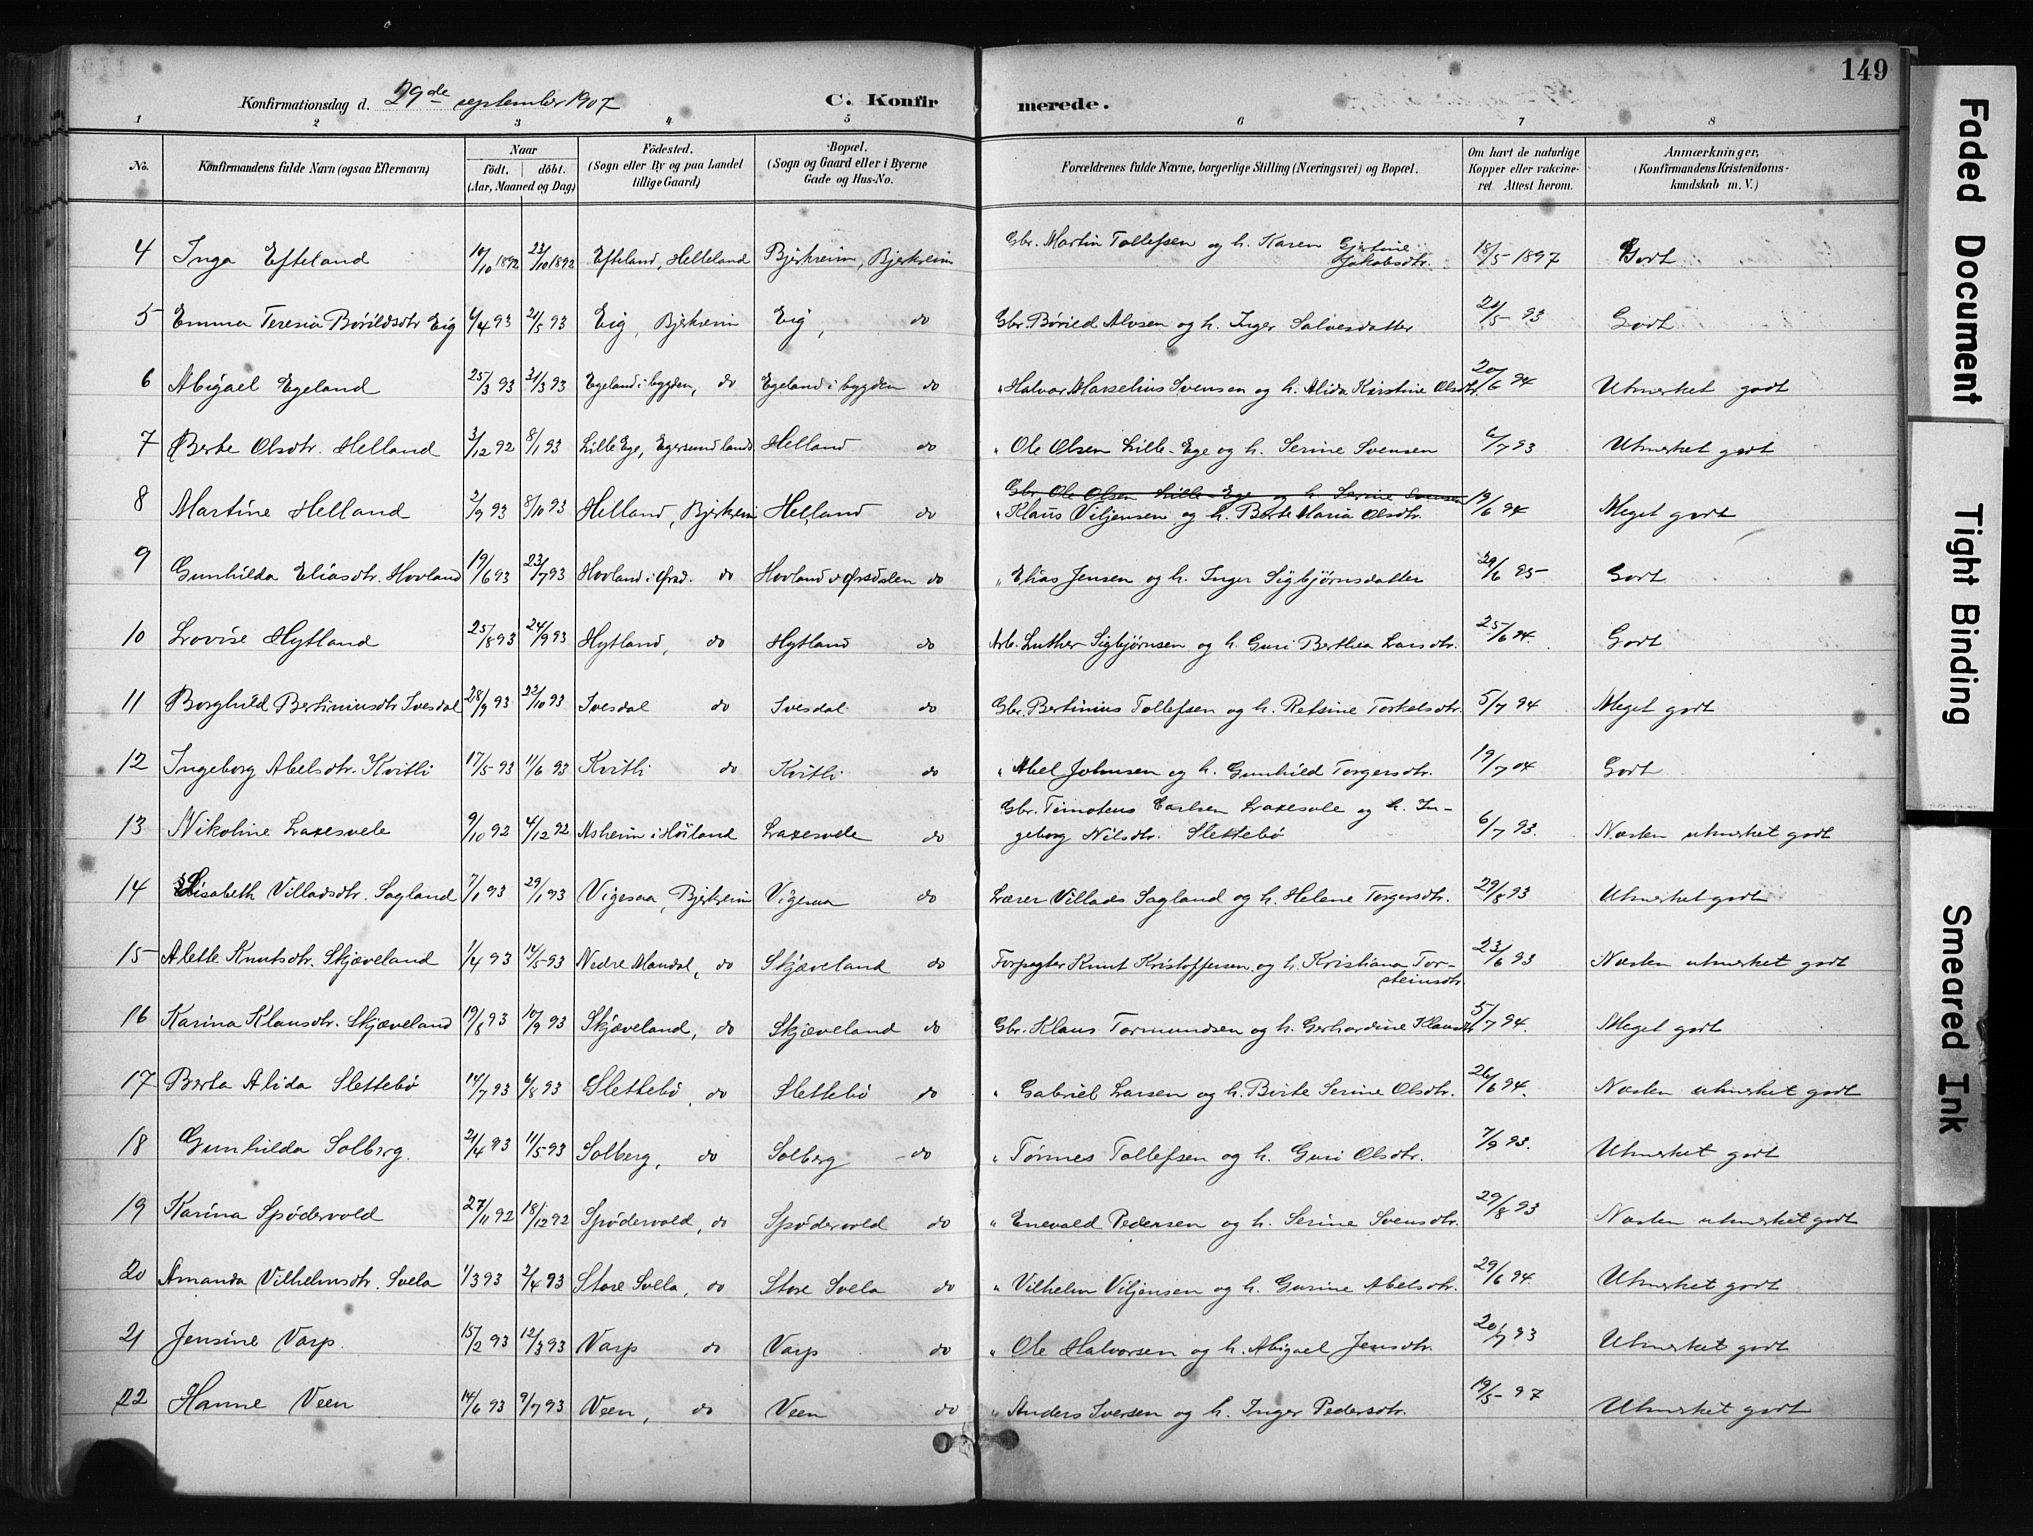 149
Konfirmationsdag d. 29de september 1907 C. Konfirmerede.
1 2 3 4 5 6 7 8
No. Konfirmandens fulde Navn (ogsaa Efternavn) Naar født, døbt. (Aar, Maaned og Dag) Fødested. (Sogn eller By og paa Landet tillige Gaard) Bopæl. (Sogn og Gaard eller i Byerne Gade og Hus-No. Forældrenes fulde Navne, borgerlige Stilling (Næringsvei) og Bopæl. Om havt de naturlige Kopper eller vakcineret. Attest herom. Anmærkninger, (Konfirmandens Kristendomskundskab m. V.)
4 Inga Efteland 10/10 1892 23/10 1892 Efteland, Helleland Bjerkreim, Bjerkreim Gbr. Martin Tollefsen og h. Karen Gjertine Jakobsdtr. 18/5 1897 Godt
5 Emma Teresia Børildsdtr Eig 4/4 93 21/5 93 Eig, Bjerkreim Eig, do Gbr. Børild Alvsen og h. Inger Salvesdatter 21/5 93 Godt
6 Abigael Egeland 25/3 93 31/3 93 Egeland i bygden, do Egeland i bygden do " Halvor Marselius Svensen og h. Alida Kristine Olsdtr. 20/6 94 Utmerket godt
7 Berte Olsdtr. Helland 3/12 92 8/1 93 Lille Ege, Egersund lands Helland do " Ole Olsen Lille-Ege og h. Serine Svensen 6/7 93 Utmerket godt
8 Martine Helland 2/9 93 8/10 93 Helland, Bjerkreim Helland do Gbr. Ole Olsen Lille-Ege og h. Serine Svensen
" Klaus Viljensen og h. Berte Maria Olsdtr. 19/6 94 Meget godt
9 Gunhilda Eliasdtr. Hovland 19/6 93 23/7 93 Hovland i Ørsd. do Hovland i Ørsdalen do " Elias Jensen og h. Inger Sigbjørnsdatter 29/6 95 Godt
10 Lovise Hytland 25/8 93 24/9 93 Hytland, do Hytland do Arb. Luther Sigbjørnsen og h. Guri Berthea Larsdtr. 25/6 94. Godt
11 Borghild Bertiniusdtr Ivesdal 28/9 93 22/10 93 Ivesdal do Ivesdal do Gbr. Bertinius Tollefsen og h. Retsine Torkelsdtr. 5/7 94 Meget godt
12 Ingeborg Abelsdtr. Kvitli 17/5 93 11/6 93 Kvitli do Kvitli do " Abel Johnsen og h. Gunhild Torgersdtr. 19/7 04 Godt
13 Nikoline Laxesvele 9/10 92 4/12 92 Asheim i Høiland Laxesvele do Gbr. Timoteus Carlsen Laxesvele og h. In-
geborg Nilsdtr. Slettebø 6/7 93. Næsten utmerket godt
14 Elisabeth Villadsdtr. Sagland 7/1 93 29/1 93 Vigesaa, Bjerkreim Vigesaa do Lærer Villads Sagland og h. Helene Torgersdtr. 29/8 93 Utmerket godt
15 Alette Knutsdtr. Skjæveland 1/4 93 14/5 93 Nedre Maudal, do Skjæveland do Forpagter Knut Kristoffersen og h. Kristiana Tor-
steinsdtr. 23/6 93 Næsten utmerket godt
16 Karina Klausdtr. Skjæveland 19/8 93 10/9 93 Skjæveland, do Skjæveland do Gbr. Klaus Tormundsen og h. Gerhardine Klausdtr 5/7 94. Meget godt
17 Berta Alida Slettebø 14/7 93 6/8 93 Slettebø, do Slettebø do " Gabriel Larsen og h. Berte Serine Olsdtr. 26/6 94. Næsten utmerket godt
18 Gunhilda Solberg. 21/4 93 11/5 93 Solberg, do Solberg do " Tørmes Tollefsen og h. Guri Olsdtr. 7/9 93. Utmerket godt
19 Karina Spødervold 27/11 92 18/12 92 Spødervold, do Spødervold do " Enevald Pedersen og h. Serine Svensdtr. 29/8 93 Næsten utmerket godt
20 Amanda Vilhelmsdtr. Svela 1/3 93 2/4 93 Store Svela, do Store Svela do " Vilhelm Viljensen og h. Gurine Abelsdtr. 29/6 94. Utmerket godt
21 Jensine Varp. 15/2 93 12/3 93 Varp do Varp do " Ole Halvorsen og h. Abigael Jensdtr. 20/7 93 Utmerket godt
22 Hanne Veen 14/6 93 9/7 93 Veen, do Veen do " Anders Iversen og h. Inger Pedersdtr. 19/5 97 Utmerket godt
Faded Document
Tight Binding
Smeared Ink